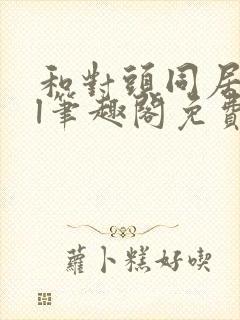 和對頭同居
l筆趣閣免費
蘿卜糕好喫